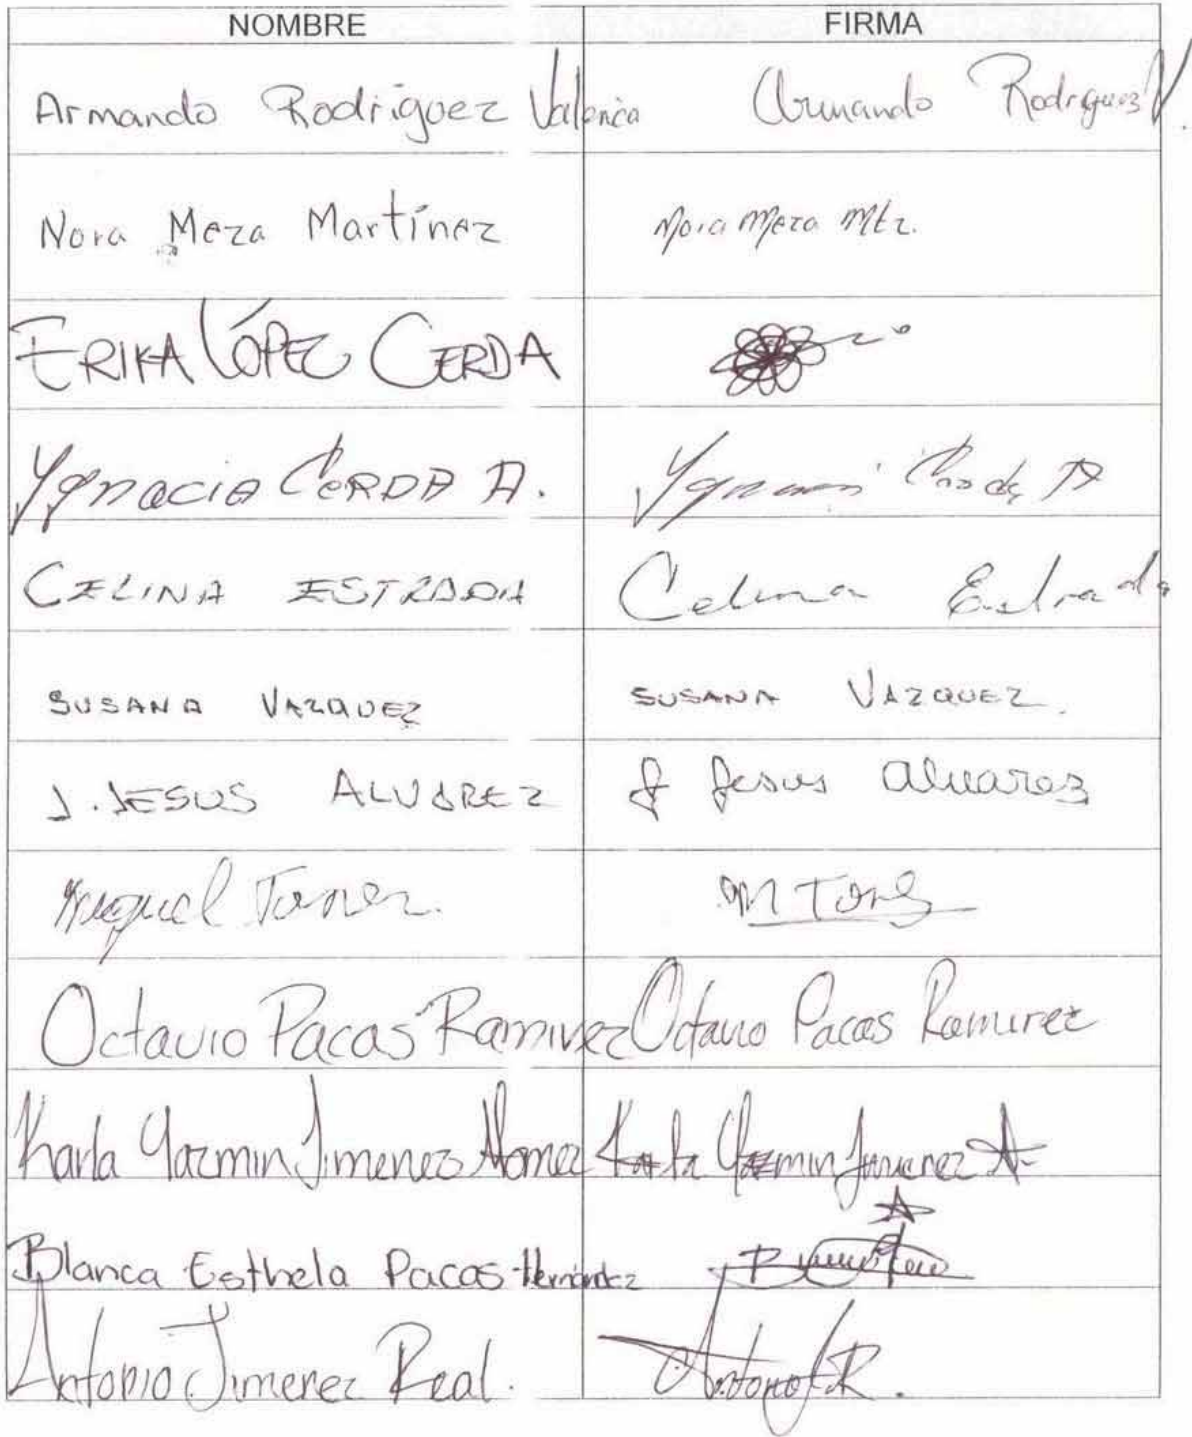 NOMBRE FIRMA
Armando Rodríguez Valencia Armando Rodríguez V.
Nora Meza Martínez Nora Meza Mtz.
ERIKA LÓPEZ CERDA
Ygnacia CERDA A. A
CELINA ESTRADA Celina Estrada
SUSANA VAZQUEZ SUSANA VAZQUEZ.
J. JESUS ALVAREZ J Jesus alvarez
Miguel M
Octavio Pacas Ramirez Octavio Pacas Ramirez
Karla Yazmin Jimenez Karla Yazmin Jimenez A.
Blanca Esthela Pacas Hernández
Antonio Jimenez Real. Antonio J.R.